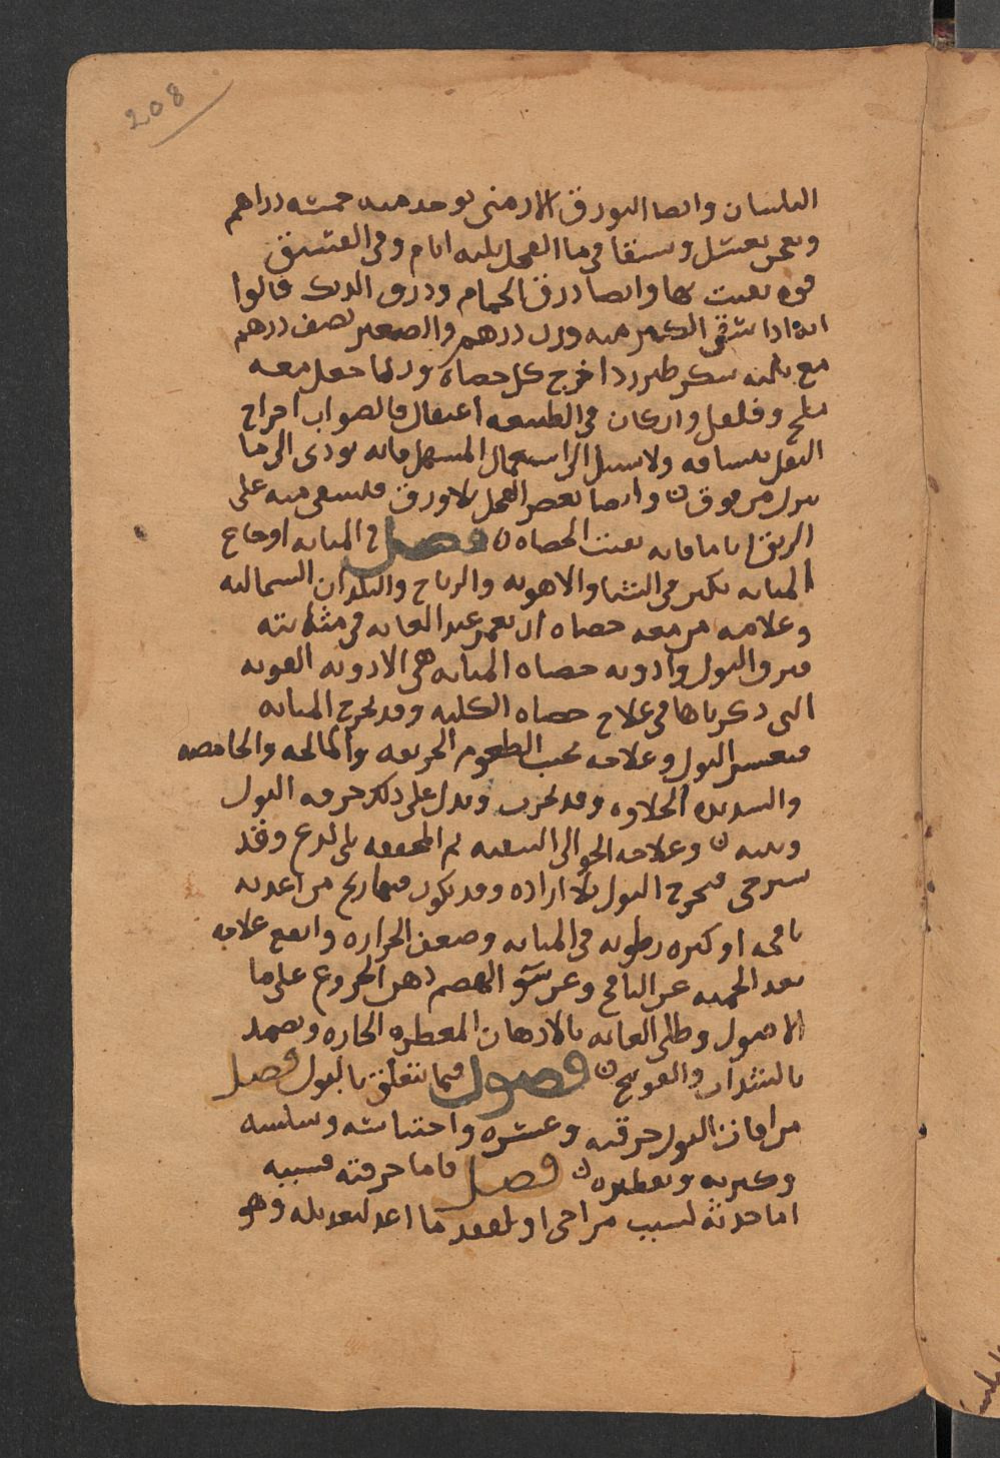 208
البلسان وايضا البورق الارمنى يوخد منه خمسه دراهم
ويعجن بعسل ويسقا فى ما الفجل ثلثه ايام وفى العتيق
قوه يفتت بها وايضا ذرق الحمام وذرق الديك قالوا
انه اذا سقى الكبير منه وزن درهم والصغير نصف درهم
مع مثله سكر طبرزد اخرج كل حصاه وربما جعل معه
ملح وفلفل وان كان فى الطبيعه اعتقال فالصواب اخراج
الثفل بشيافه ولا سبيل الى استعمال المسهل فانه يودى الى ما
ينزل من فوق وايضا يعصر الفجل بلا ورق فيسقى منه على
الريق اياما فانه يفتت الحصاه فصل فى المثانه اوجاع
المثانه تكثر فى الشتا والاهويه والرياح والبلدان الشماليه
وعلامه من معه حصاه ان يعمز عند العانه فى مثانته
البول وادويه حصاه المثانه هى الادويه القويه
التى ذكرناها فى علاج حصاه الكليه وقد تخرج المثانه
فيعسر البول وعلاجه تجنب الطعوم الحريفه والمالحه والحامضه
والشديده الحلاوه وقد تجرب ويدل على ذلك حرقه البول
ونتنه وعلاجه الجوالى المنقيه ثم المجففه بلا لدع وقد
تسترخى فيخرج البول بلا اراده وقد يكون فيها ريح من اغديه
نافخه او كثره رطوبه فى المثانه وضعف الحراره وانفع علاجه
بعد الحميه عن النافخ وعن سو الهضم دهن الخروع على ما
الاصول وطلى العانه بالادهان العطره الحاره ويضمد
بالسذاب والفوتنج فصول فيما يتعلق بالبول فصل
من افات البول حرقته وعسره واحتباسه وسلسه
وكثرته وتقطيره فصل فاما حرقته فسببه
اما حدته لسبب مزاجى او لفقد ما اعد لتعديله وهو